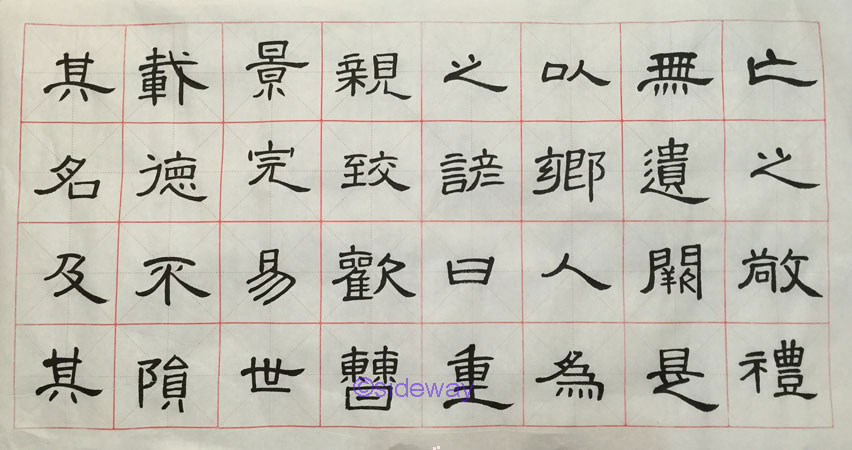 亡之敬禮
無遺闕是
以鄉人為
之諺曰重
親致歡曹
景完易世
載德不隕
其名及其
©sideway